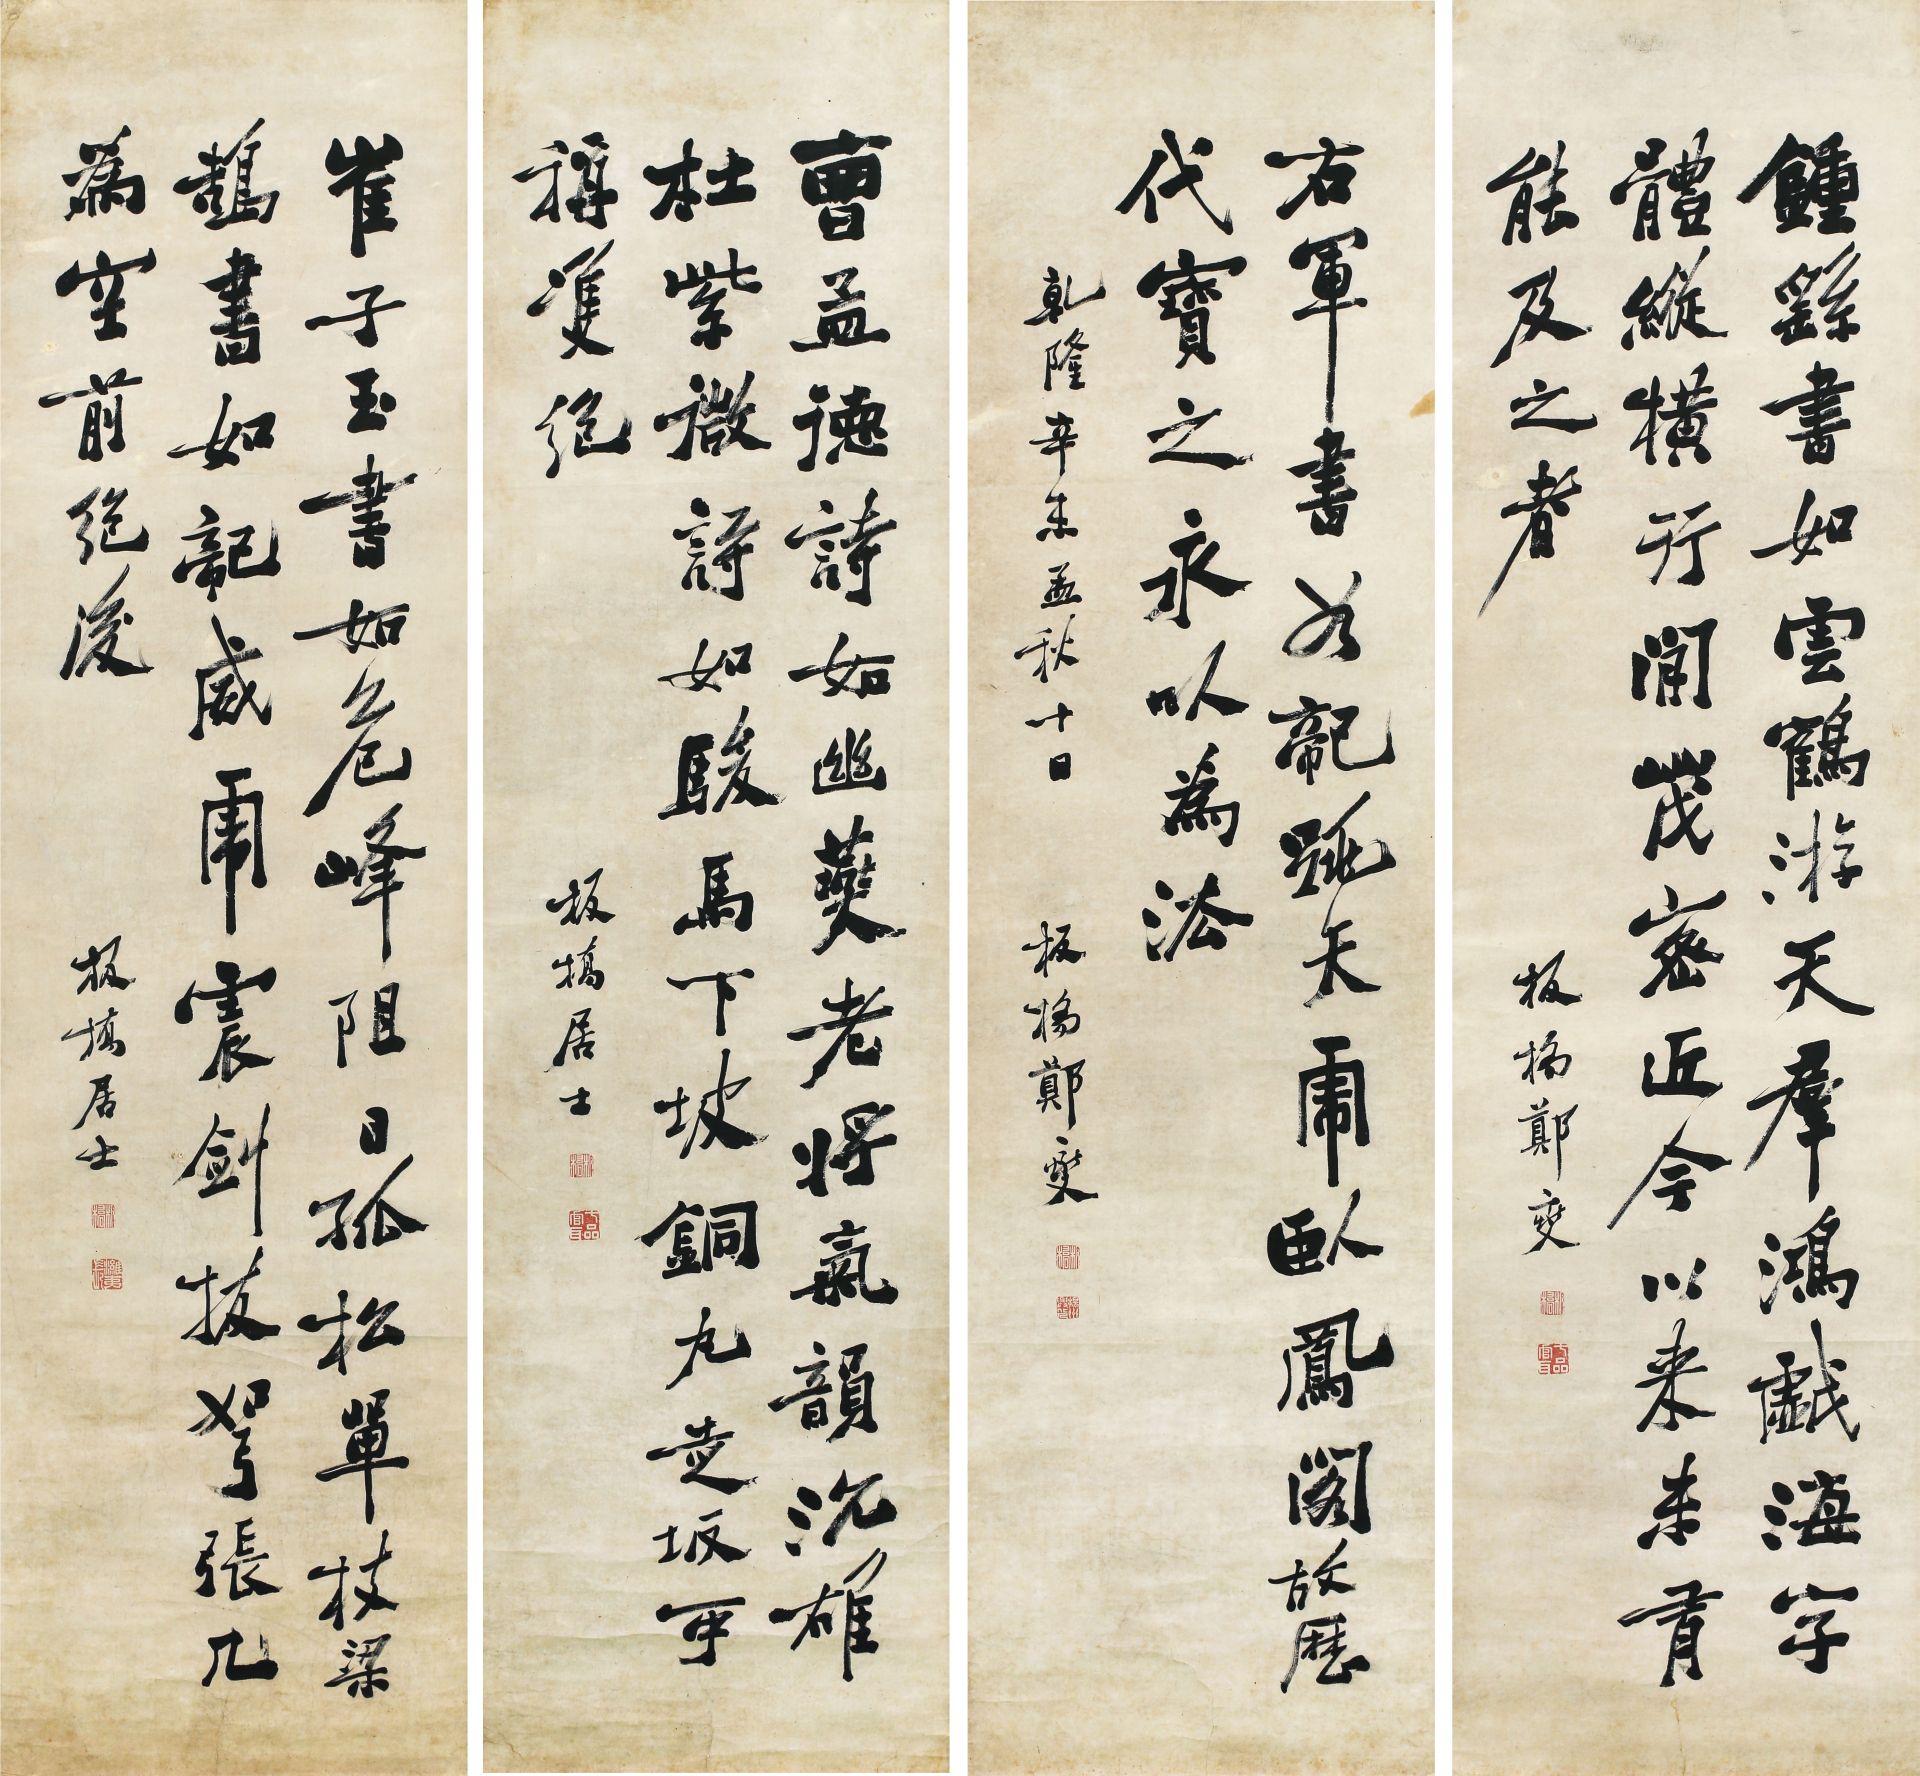 鍾繇書如雲鶴游天羣鴻戲海字
體縱橫行間茂密近今以来未有
能及之者
板橋鄭燮
右軍書如龍跳天門虎臥鳳閣故歷
代寶之永以為法
乾隆辛未孟秋十日
板橋鄭燮
曹孟德詩如幽燕老將氣韻沉雄
杜紫微詩如駿馬下坡銅丸走坂可
稱雙絕
板橋居士
崔子玉書如危峰阻日孤松單枝梁
鵠書如龍威虎震劍拔弩張几
為空前絕後
板橋居士